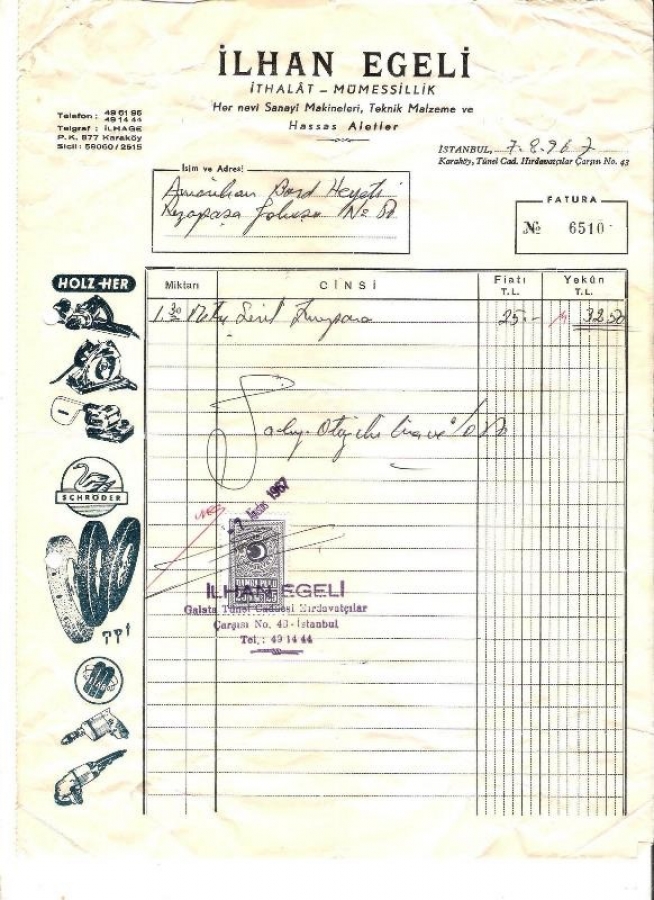 İLHAN EGELİ
İTHALÂT – MÜMESSİLLİK
Her nevi Sanayi Makineleri, Teknik Malzeme ve
Hassas Aletler
Telefon : 49 61 95
49 14 44
Telgraf : İLHAGE
P. K. 877 Karaköy
Sicil : 58060/2515
İSTANBUL, 7.8.967
Karaköy, Tünel Cad. Hırdavatçılar Çarşısı No. 43
İsim ve Adresi
Amerikan Bord Heyeti
Rızapaşa Yokuşu No 50
FATURA
№ 6510
HOLZ-HER
Miktarı
CİNSİ
Fiatı
T.L.
Yekûn
T.L.
1.30 Metre Zımpara
25.-
32.50
Otuziki lira
SCHRÖDER
7 Ağustos 1967
DAMGA PULU
İLHAN EGELİ
Galata Tünel Caddesi Hırdavatçılar
Çarşısı No. 43 - İstanbul
Tel. : 49 14 44